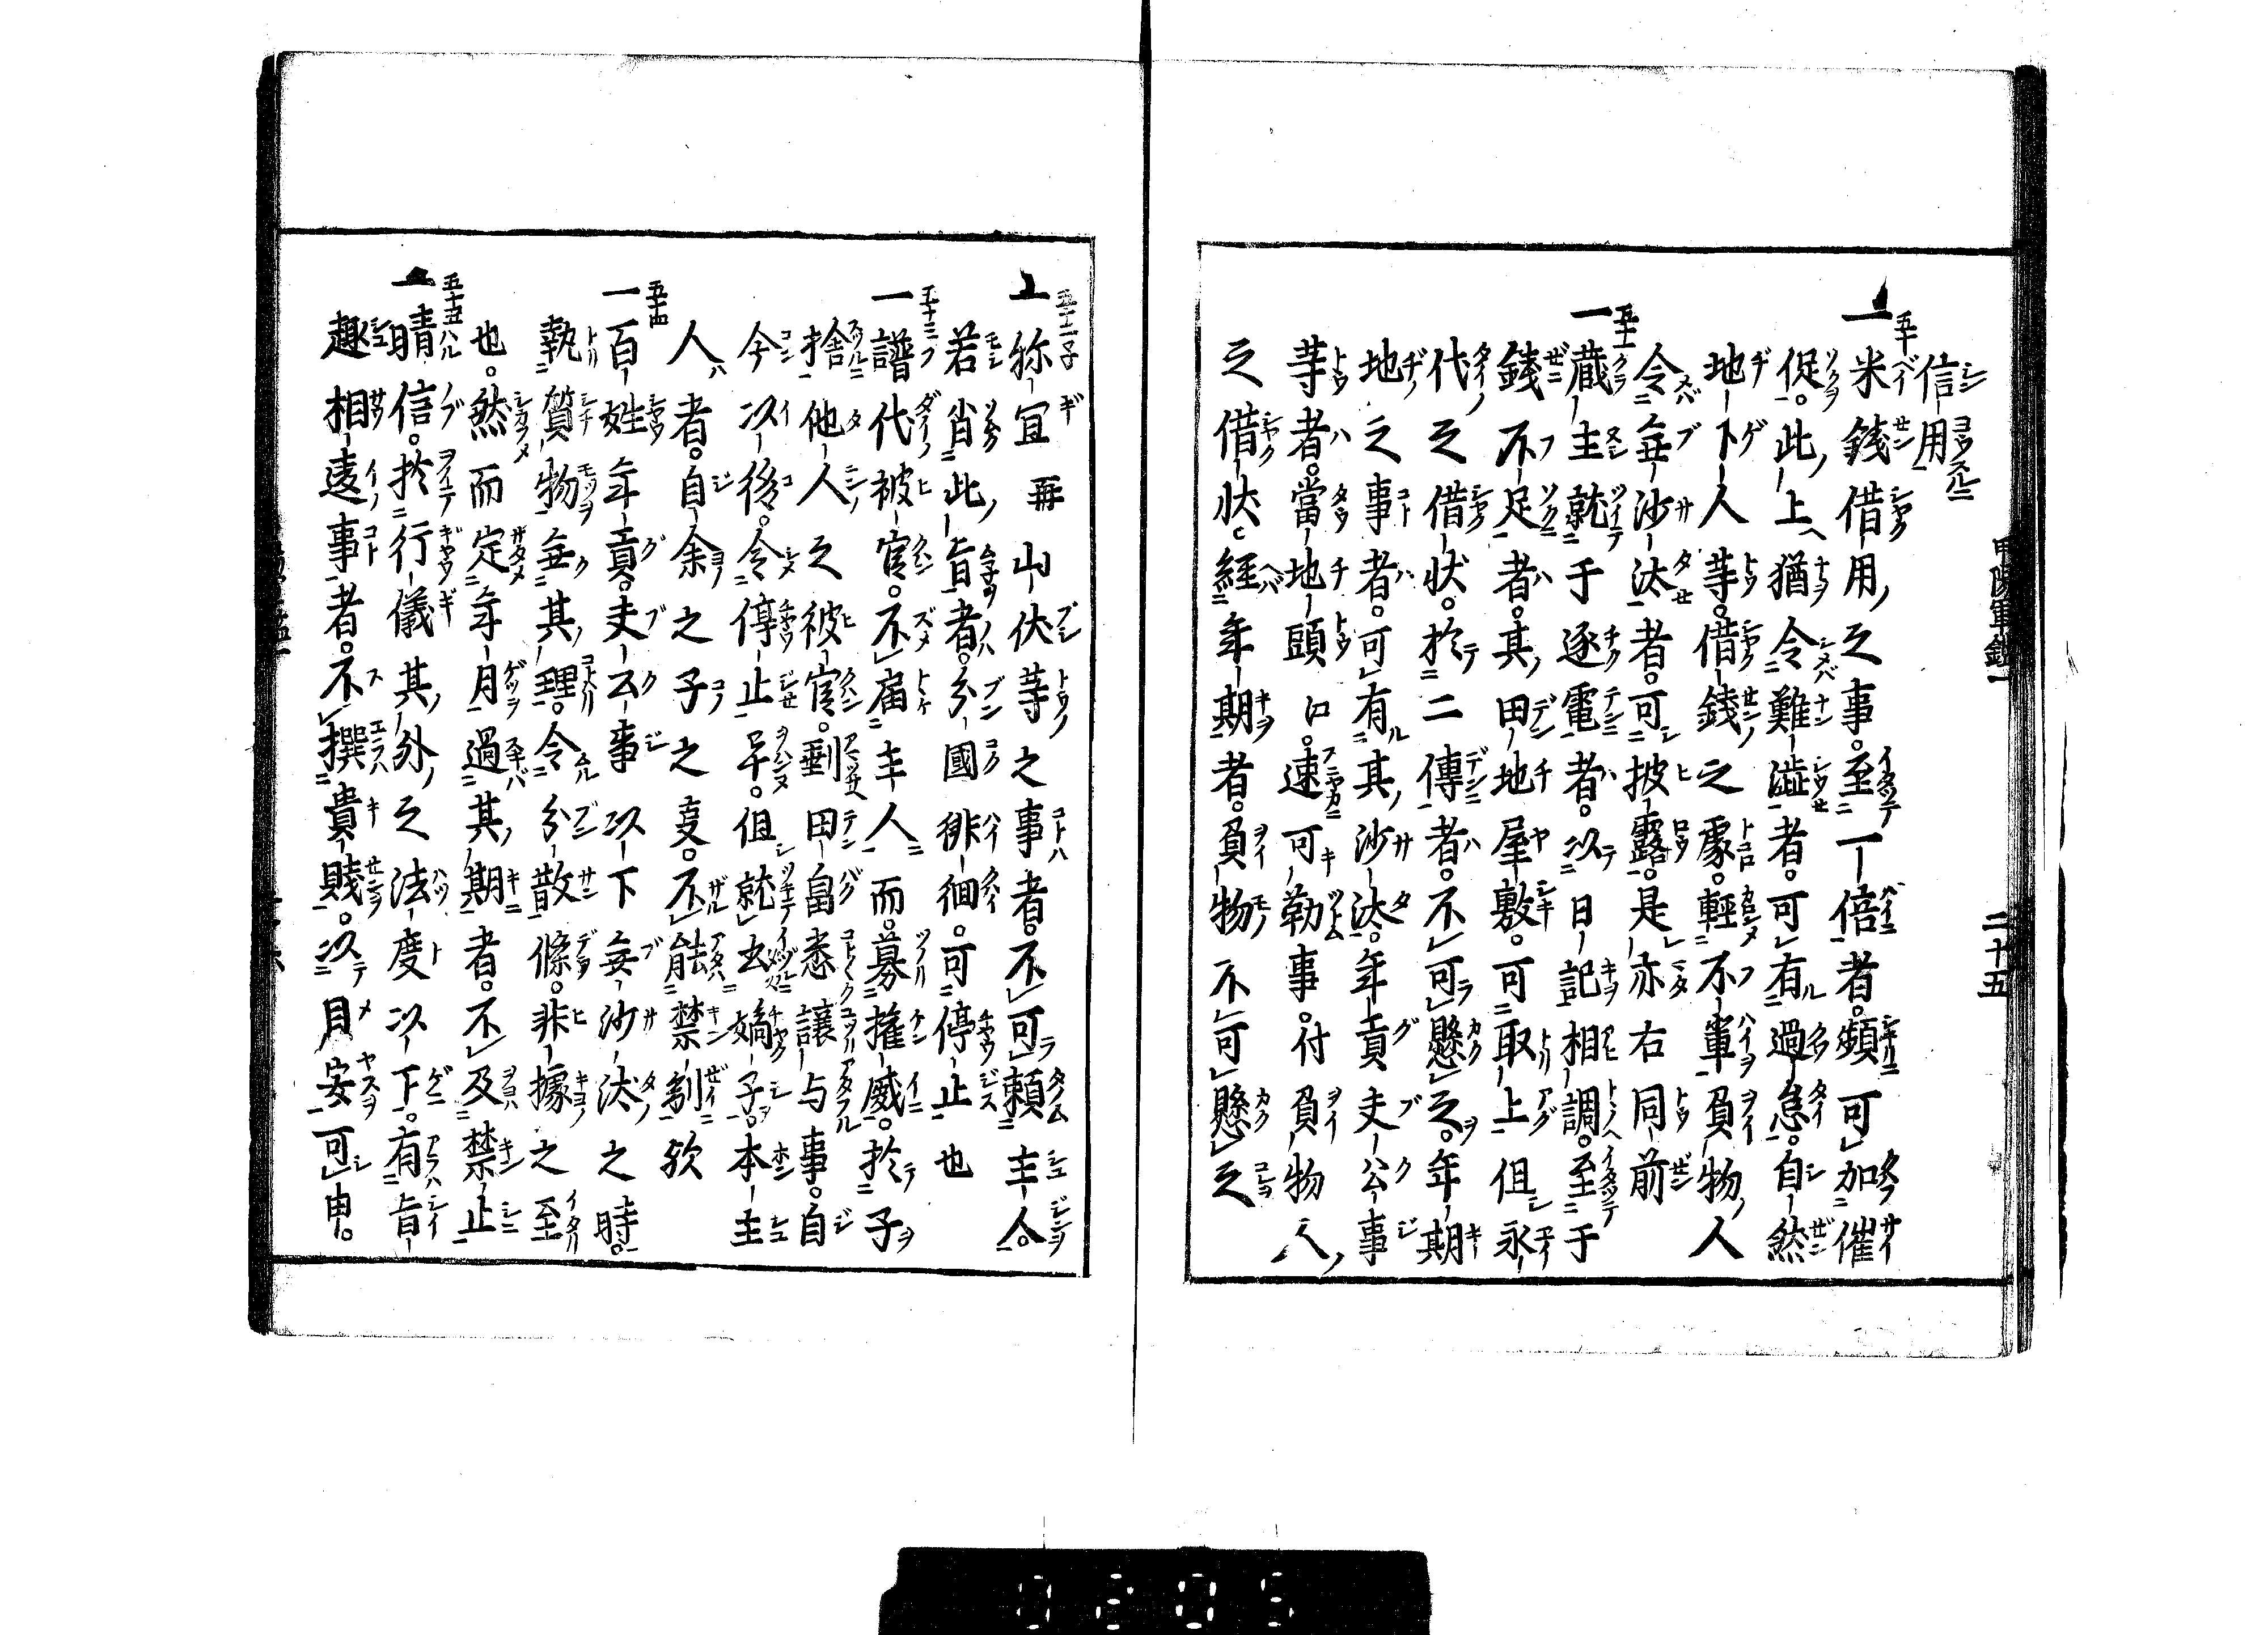 信用
一米銭借用之事。至一倍者。頻可加催
促。此上猶令難渋者。可有過怠。自然
地下人等。借銭之處。軽不輩負物人
令無沙汰者。可披露。是亦右同前
一蔵主就于逐電者。以日記相調。至于
銭不足者。其田地屋敷。可取上但永
代之借状。於二傳者。不可懸之。年期
地之事者。可有其沙汰。年貢夫公事
等者。當地頭江。速可勤事。付負物人
之借状。経年期者。負物不可懸之
甲陽軍鑑一
二十五
一祢宜并山伏等之事者。不可頼主人。
若背此旨者。分國徘徊。可停止也
一譜代被官。不届主人而。募権威。於子
捨他人之被官。剰田畠悉譲与事。自
今以後。令停止早。但就玄嫡子。本主
人者。自余之子之㕝。不能禁制欤
一百姓年貢。夫公事以下無沙汰之時。
執質物無其理。令分散條。非據之至
也。然而定年月過其期者。不及禁止
一晴信。於行儀其外之法度以下。有旨
趣相違事者。不撰貴賎。以目安可申。